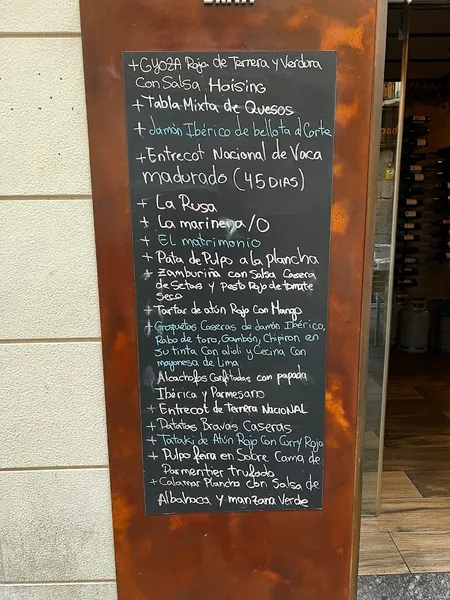 + GYOZA Roja de Ternera y Verdura
con Salsa Hoising
+ Tabla Mixta de Quesos
+ Jamón Ibérico de bellota al Corte
+ Entrecot Nacional de Vaca
madurado (45 DIAS)
+ La Rusa
+ La marinera/o
+ El matrimonio
+ Pata de Pulpo a la plancha
+ Zamburiña con Salsa Casera
de Setas y Pesto Rojo de tomate
seco
+ Tartar de atún Rojo con Mango
+ Croquetas Caseras de Jamón Ibérico,
Rabo de toro, Gambón, Chipiron en
su tinta con alioli y Cecina con
mayonesa de Lima
Alcachofas Confitadas con papada
Ibérica y Parmesano
+ Entrecot de Ternera NACIONAL
+ Patatas Bravas Caseras
+ Tataki de Atún Rojo con Curry Rojo
+ Pulpo feira en Sobre Cama de
Parmentier trufado
+ Calamar Plancha con Salsa de
Albahaca y manzana Verde